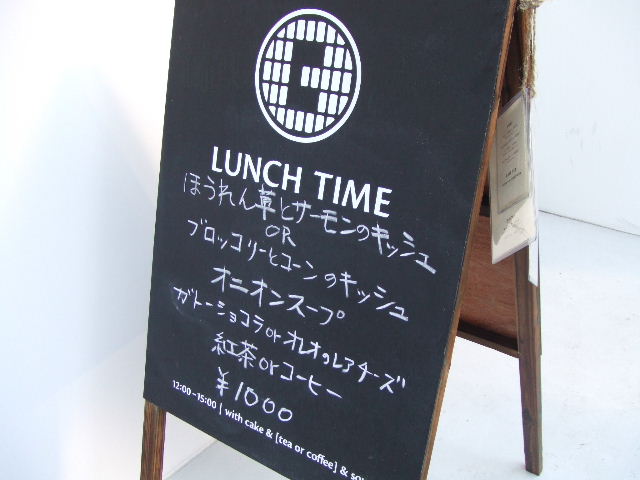 LUNCH TIME
ほうれん草とサーモンのキッシュ
OR
ブロッコリーとコーンのキッシュ
オニオンスープ
ガトーショコラorオレオのレアチーズ
紅茶orコーヒー
¥1000
12:00-15:00 | with cake & [tea or coffee] & sou